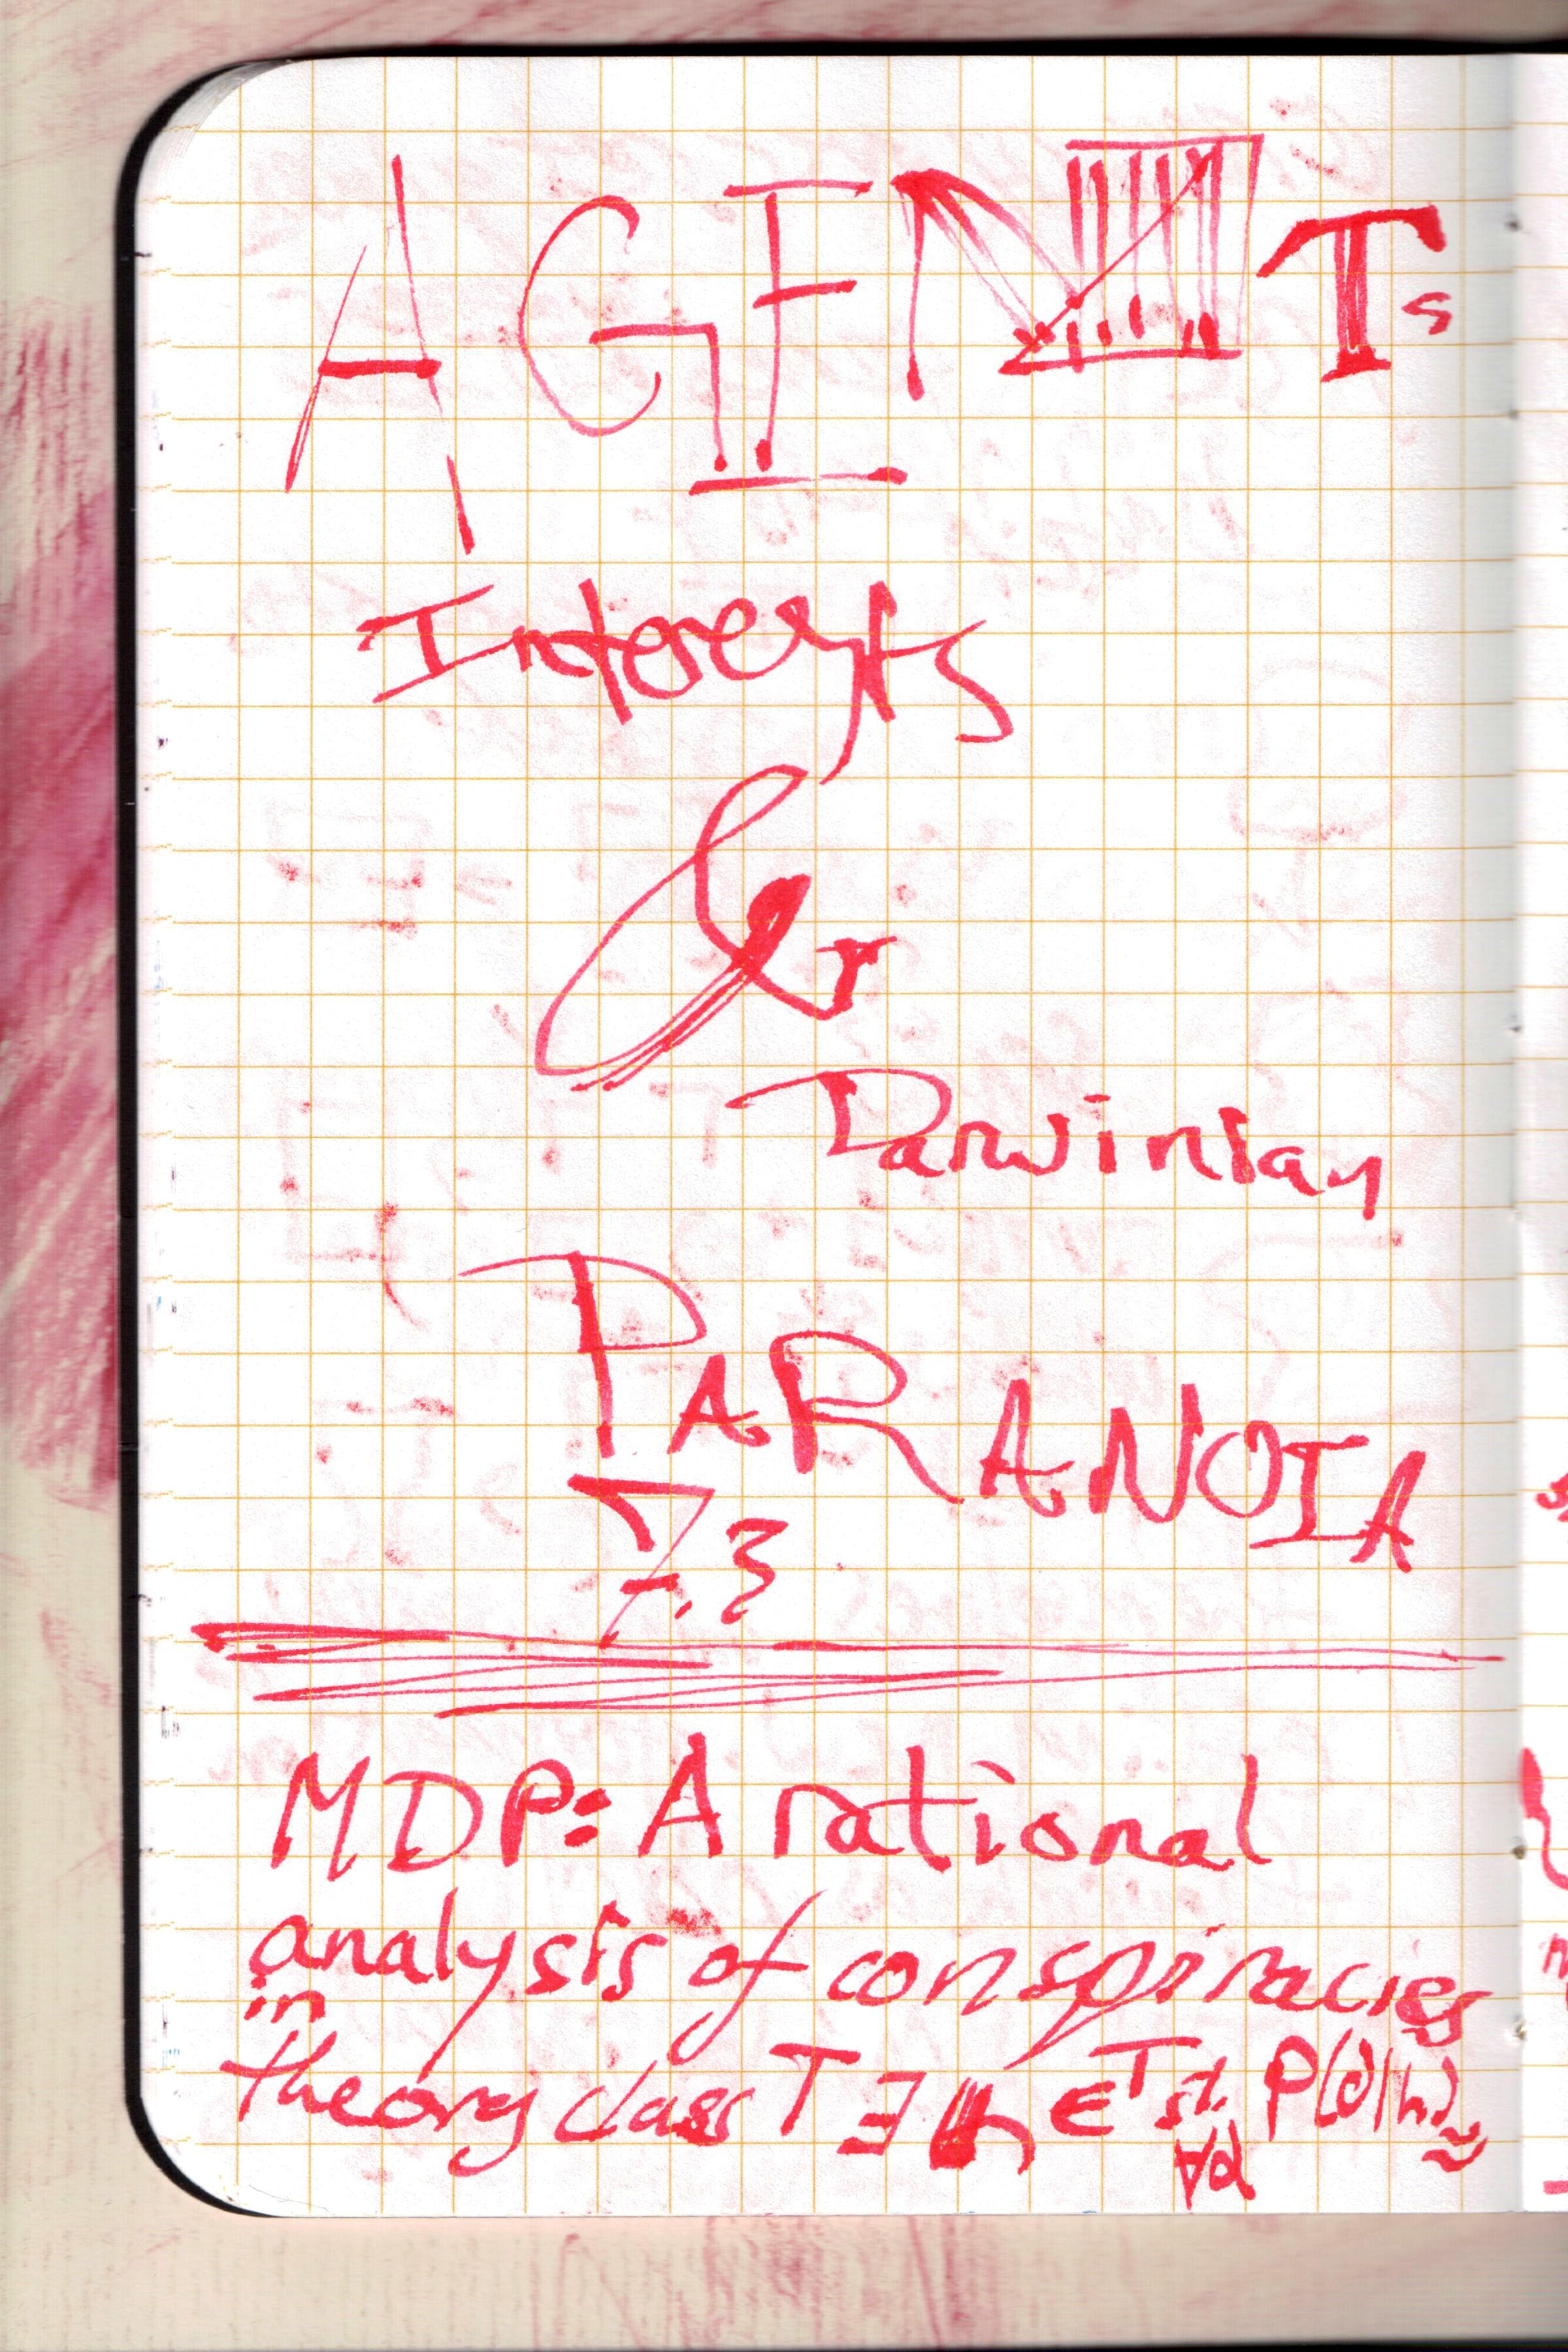 AGENTs
Interests
&
Darwinian
PARANOIA
7.3
MDP: A rational
analysis of conspiracies
in
theory class T ∃ h ∈ T s.t. P(d|h) ≈
∀d